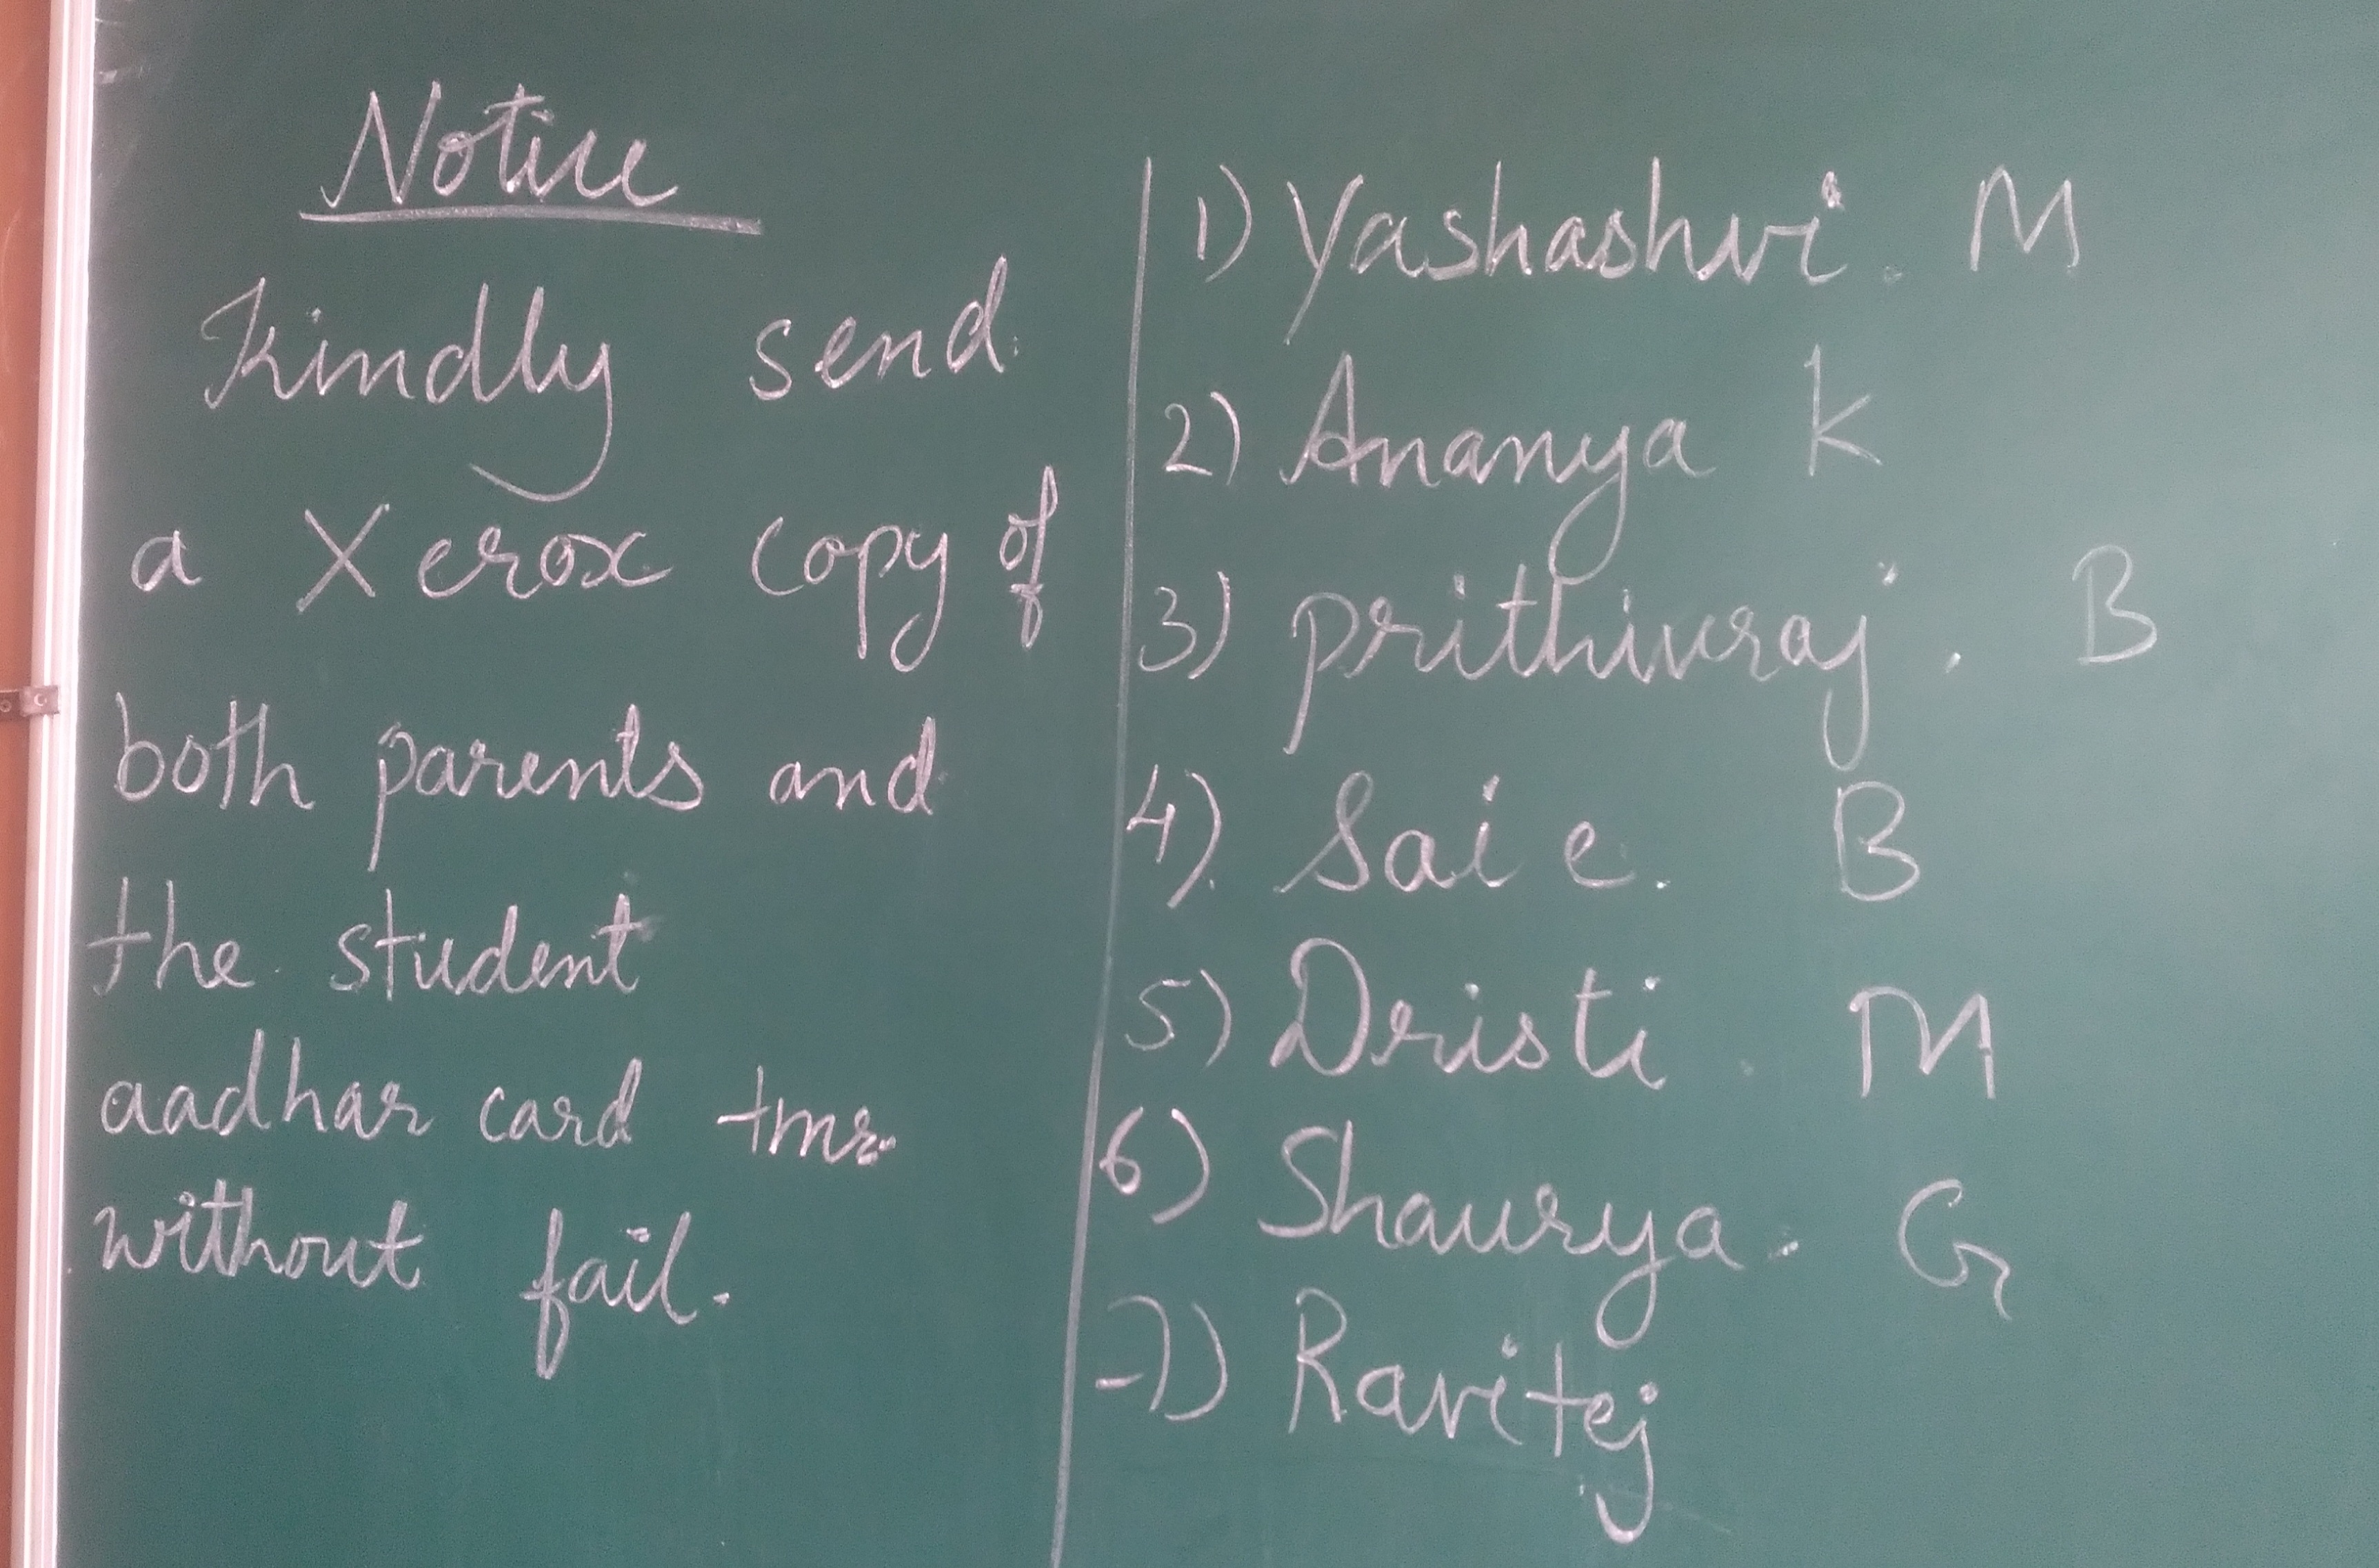 Notice
Kindly send
a Xerox copy of
both parents and
the student
aadhar card tmr
without fail.
1) Yashashvi. M
2) Ananya K
3) prithivraj. B
4). Sai e. B
5) Dristi. M
6) Shaurya. G
7) Ravitej